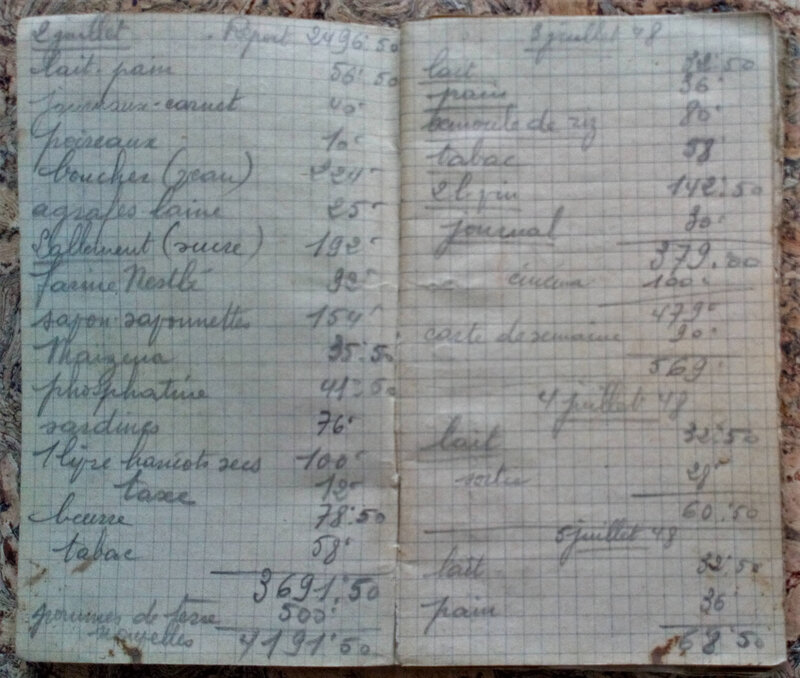 2 juillet Report 2496.50
lait. pain 56.50
journaux-carnet 40
poireaux 10
boucher (veau) 224
agrafes laine 25
Lallement (sucre) 192
farine Nestlé 92
savon. savonnettes 154
Maïzena 35.50
phosphatine 41.50
sardines 76
1 livre haricots secs 100
taxe 12
beurre 78.50
tabac 58
3691.50
pommes de terre 500
nouvelles 4191.50
3 juillet 48
lait 32.50
pain 36
semoule de riz 80
tabac 58
142.50
journal 30
379.00
cinéma 100
479
carte de semaine 90
569
4 juillet 48
lait 32.50
sortie 28
60.50
5 juillet 48
lait 32.50
pain 36
68.50